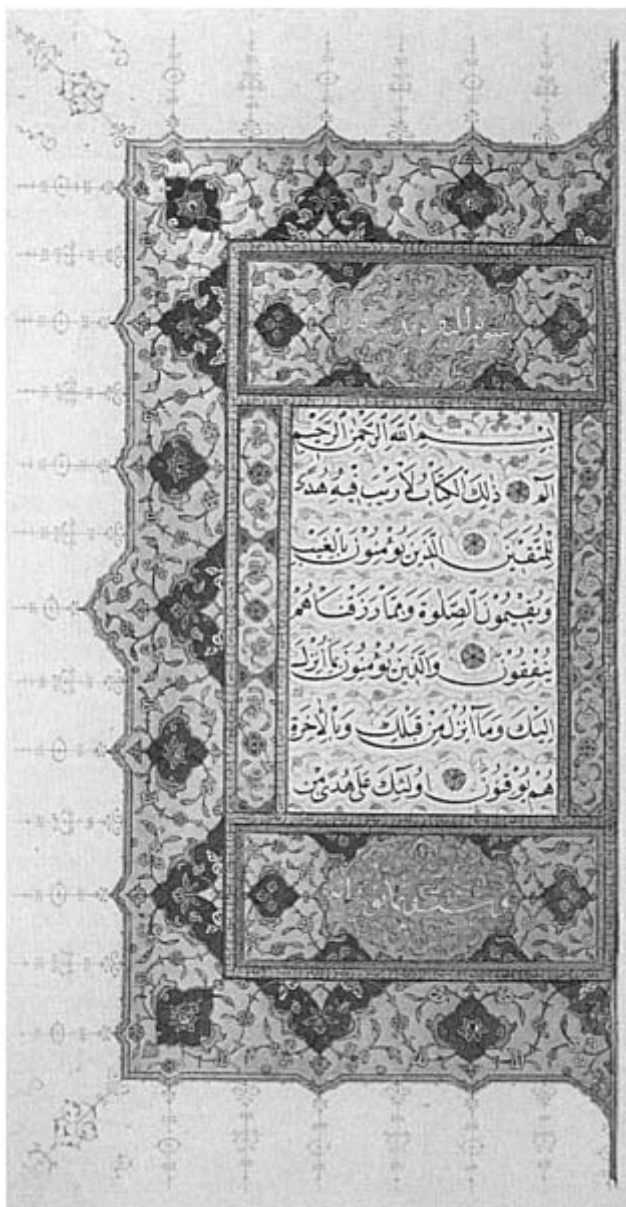 بِسْمِ ٱللَّهِ ٱلرَّحْمٰنِ ٱلرَّحِيْمِ
الٓمٓ ذٰلِكَ الْكِتَابُ لَا رَيْبَ فِيْهِ هُدًى
لِلْمُتَّقِيْنَ الَّذِيْنَ يُؤْمِنُوْنَ بِالْغَيْبِ
وَيُقِيْمُوْنَ الصَّلٰوةَ وَمِمَّا رَزَقْنَاهُمْ
يُنْفِقُوْنَ وَالَّذِيْنَ يُؤْمِنُوْنَ بِمَا اُنْزِلَ
اِلَيْكَ وَمَا اُنْزِلَ مِنْ قَبْلِكَ وَبِالْاٰخِرَةِ
هُمْ يُوْقِنُوْنَ اُولٰئِكَ عَلٰى هُدًى مِنْ